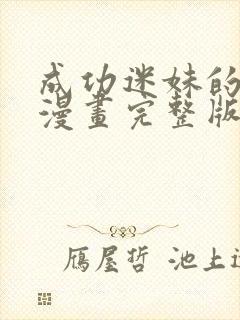 成功迷妹的
漫畫完整版
雁屋哲 池上遼